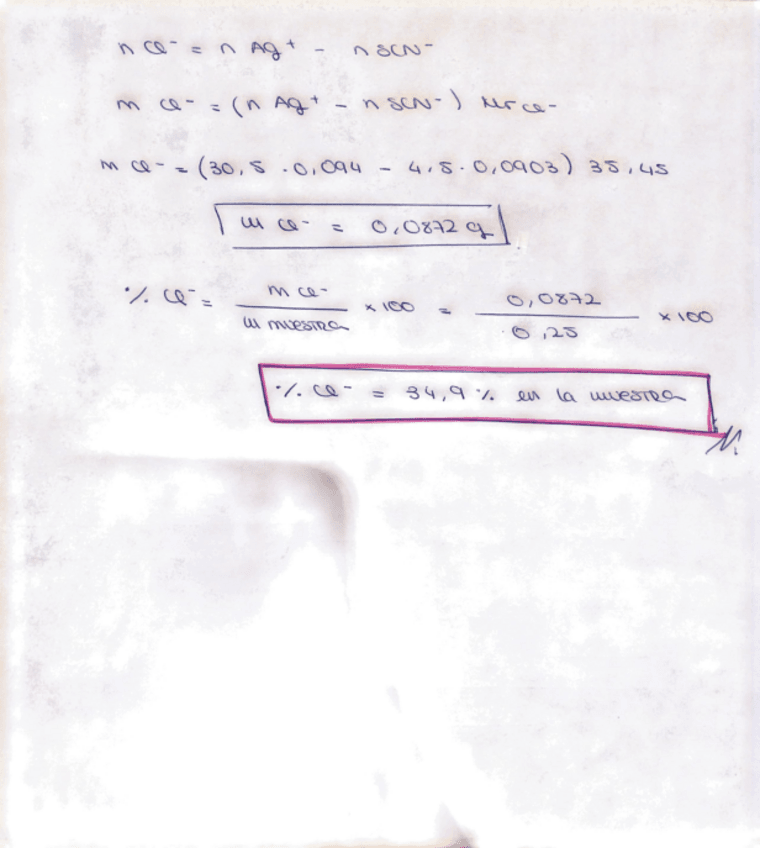 n Cl⁻ = n Ag⁺ - n SCN⁻
m Cl⁻ = (n Ag⁺ - n SCN⁻) Mr Cl⁻
m Cl⁻ = (30,5 · 0,094 - 4,5 · 0,0903) 35,45
m Cl⁻ = 0,0872 g
% Cl⁻ = m Cl⁻ / m muestra × 100 = 0,0872 / 0,25 × 100
% Cl⁻ = 34,9 % en la muestra